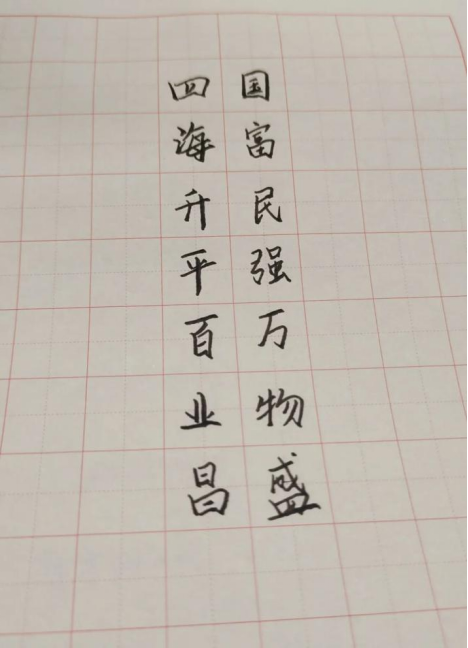 国富民强万物盛
四海升平百业昌